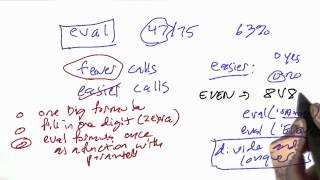 eval 47/75 63%
fewer calls
easier calls
easier: 0 yes
0 no
EVEN → 8V8
one big formula
fill in one digit (zebra)
eval formula once
as a function with
eval(
eval('E
divide and
conquer